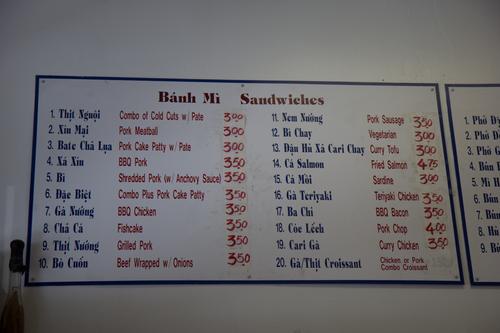 Bánh Mì Sandwiches
1. Thịt Nguội Combo of Cold Cuts w/ Pate 3.00
2. Xíu Mại Pork Meatball 3.00
3. Bate Chả Lụa Pork Cake Patty w/ Pate 3.00
4. Xá Xíu BBQ Pork 3.50
5. Bì Shredded Pork (w/ Anchovy Sauce) 3.50
6. Đặc Biệt Combo Plus Pork Cake Patty 3.50
7. Gà Nướng BBQ Chicken 3.50
8. Chả Cá Fishcake 3.50
9. Thịt Nướng Grilled Pork 3.50
10. Bò Cuốn Beef Wrapped w/ Onions 3.50
11. Nem Nướng Pork Sausage 3.50
12. Bì Chay Vegetarian 3.00
13. Đậu Hủ Xả Cari Chay Curry Tofu 3.00
14. Cá Salmon Fried Salmon 4.75
15. Cá Mòi Sardine 3.00
16. Gà Teriyaki Teriyaki Chicken 3.50
17. Ba Chỉ BBQ Bacon 3.50
18. Cốc Lếch Pork Chop 4.00
19. Cari Gà Curry Chicken 3.50
20. Gà/Thịt Croissant Chicken or Pork Combo Croissant
1. Phở
2. Phở
3. Phở
4. Bún
5. Mì
6. Bún
7. Bún
8.
9.